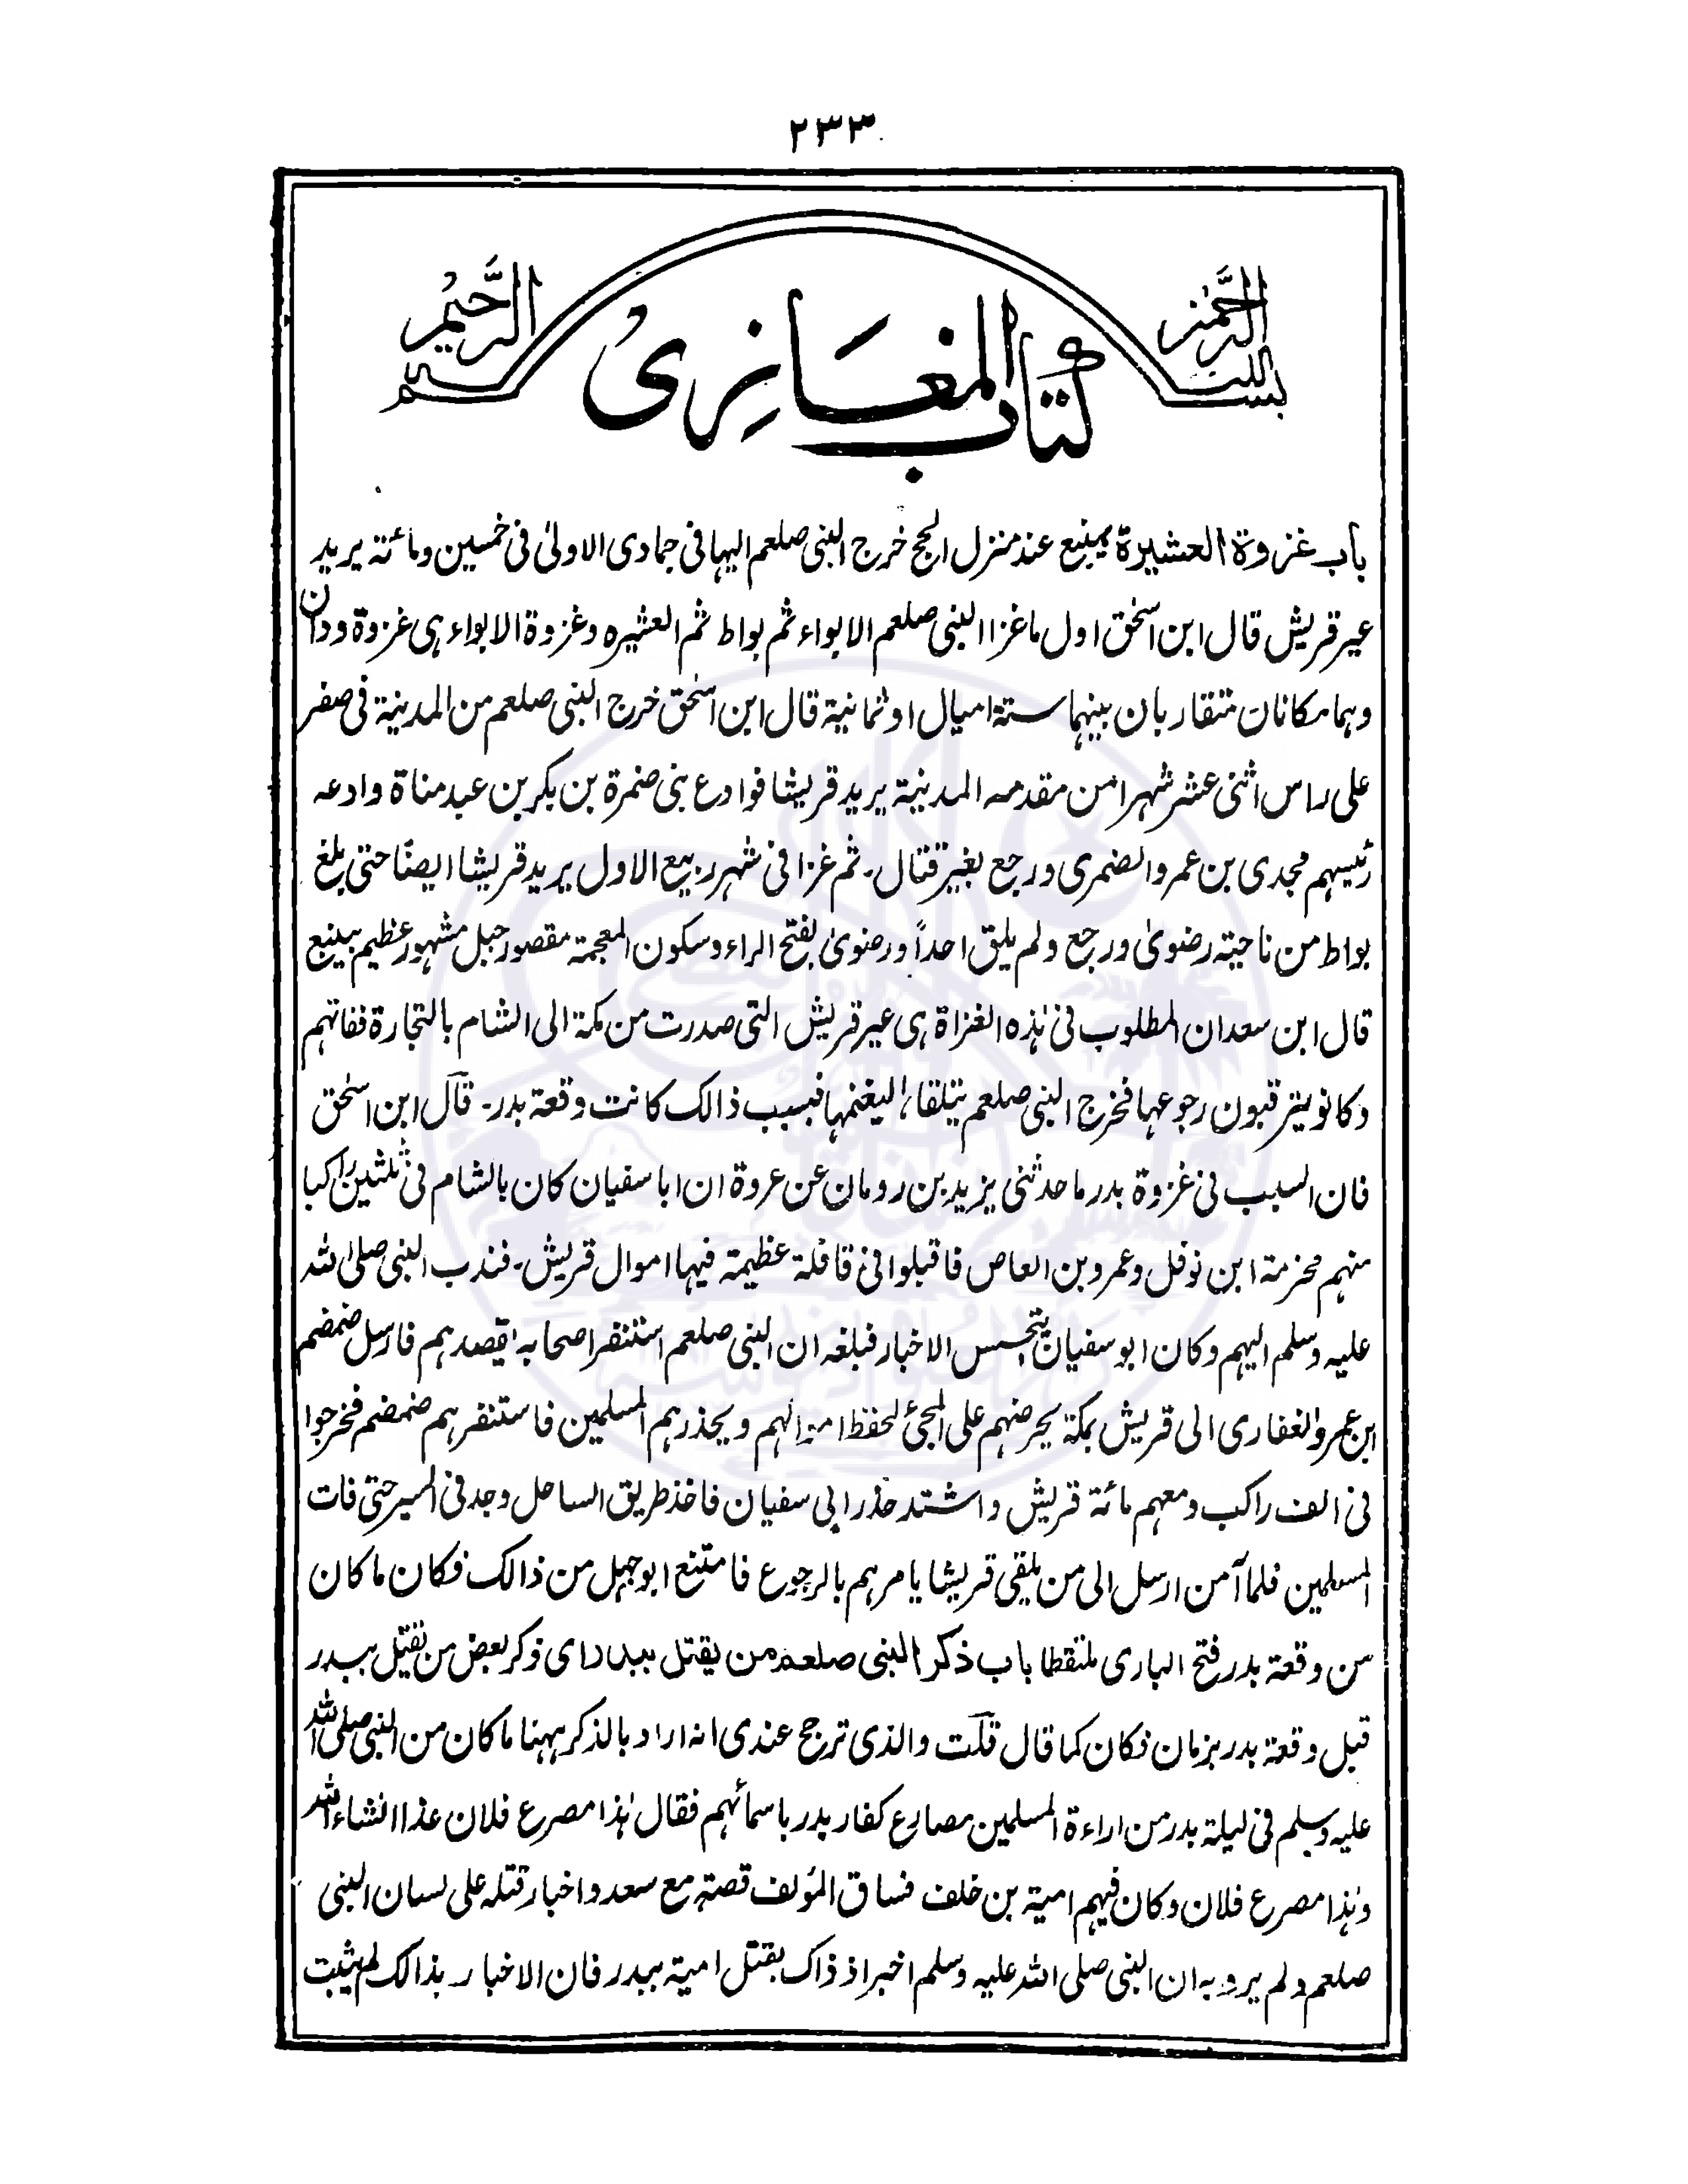 ٢٣٣
بسم الله الرحمن الرحيم
كتاب المغازى
باب غزوة العشيرة بينبع عند منزل الحج خرج النبى صلعم اليها فى جمادى الاولىٰ فى خمسين ومائة يريد
عير قريش قال ابن اسحٰق اول ما غزا النبى صلعم الابواء ثم بواط ثم العشيره وغزوة الابواء هى غزوة ودان
وهما مكانان متقاربان بينهما ستة اميال او ثمانية قال ابن اسحٰق خرج النبى صلعم من المدينة فى صفر
على راس اثنى عشر شهرا من مقدمه المدينة يريد قريشا فوادع بنى ضمرة بن بكر بن عبد مناة وادعه
رئيسهم مجدى بن عمرو الضمرى ورجع بغير قتال۔ ثم غزا فى شهر ربيع الاول يريد قريشا ايضًا حتى بلغ
بواط من ناحية رضوىٰ ورجع ولم يلق احداً ورضوىٰ بفتح الراء وسكون المعجمة مقصور جبل مشهور عظيم بينبع
قال ابن سعد ان المطلوب فى هٰذه الغزاة هى عير قريش التى صدرت من مكة الى الشام بالتجارة ففاتهم
وكانو يترقبون رجوعها فخرج النبى صلعم يتلقاها ليغنمها فبسبب ذالك كانت وقعة بدر۔ قال ابن اسحٰق
فان السبب فى غزوة بدر ما حدثنى يزيد بن رومان عن عروة ان ابا سفيان كان بالشام فى ثلٰثين راكبا
منهم مخرمة ابن نوفل وعمرو بن العاص فاقبلوا فى قافلة عظيمة فيها اموال قريش۔ فندب النبى صلى الله
عليه وسلم اليهم وكان ابو سفيان يتجسس الاخبار فبلغه ان النبى صلعم استنفر اصحابه يقصدهم فارسل ضمضم
ابن عمرو الغفارى الى قريش بمكة يحرضهم على المجئ لحفظ اموالهم ويحذرهم المسلمين فاستنفرهم ضمضم فخرجوا
فى الف راكب ومعهم مائة قريش واشتد حذر ابى سفيان فاخذ طريق الساحل وجد فى السير حتى فات
المسلمين فلما آمن ارسل الى من يلقى قريشا يامرهم بالرجوع فامتنع ابو جهل من ذالك فكان ما كان
من وقعة بدر فتح البارى ملتقطا باب ذكر النبى صلعم من يقتل ببدر اى ذكر بعض من يقتل ببدر
قبل وقعة بدر بزمان فكان كما قال قلت والذى ترجح عندى انه اراد بالذكر ههنا ما كان من النبى صلى الله
عليه وسلم فى ليلة بدر من اراءة المسلمين مصارع كفار بدر باسمائهم فقال هٰذا مصرع فلان غدا انشاء الله
وهٰذا مصرع فلان وكان فيهم امية بن خلف فساق المؤلف قصته مع سعد واخبار قتله على لسان النبى
صلعم ولم يرو به ان النبى صلى الله عليه وسلم اخبر اذ ذاك بقتل امية ببدر فان الاخبار بذالك لم يثبت